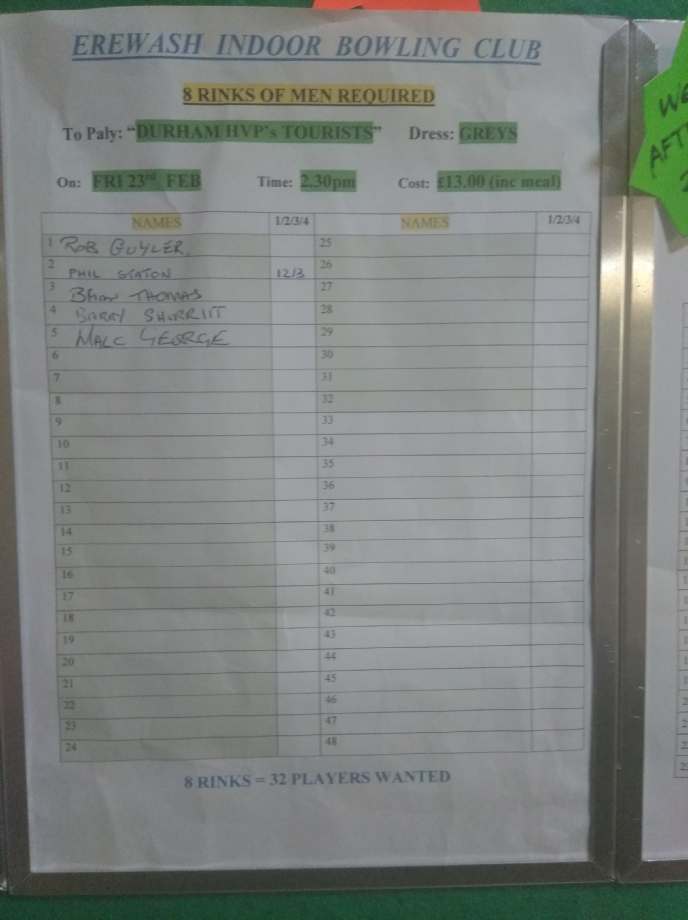 EREWASH INDOOR BOWLING CLUB
8 RINKS OF MEN REQUIRED
To Paly: “DURHAM HVP's TOURISTS” Dress: GREYS
On: FRI 23rd FEB Time: 2.30pm Cost: £13.00 (inc meal)
NAMES 1/2/3/4 NAMES 1/2/3/4
1 ROB GUYLER 25
2 PHIL STATON 12/3 26
3 THOMAS 27
4 BARRY SHERRITT 28
5 MALC GEORGE 29
6 30
7 31
8 32
9 33
10 34
11 35
12 36
13 37
14 38
15 39
16 40
17 41
18 42
19 43
20 44
21 45
22 46
23 47
24 48
8 RINKS = 32 PLAYERS WANTED